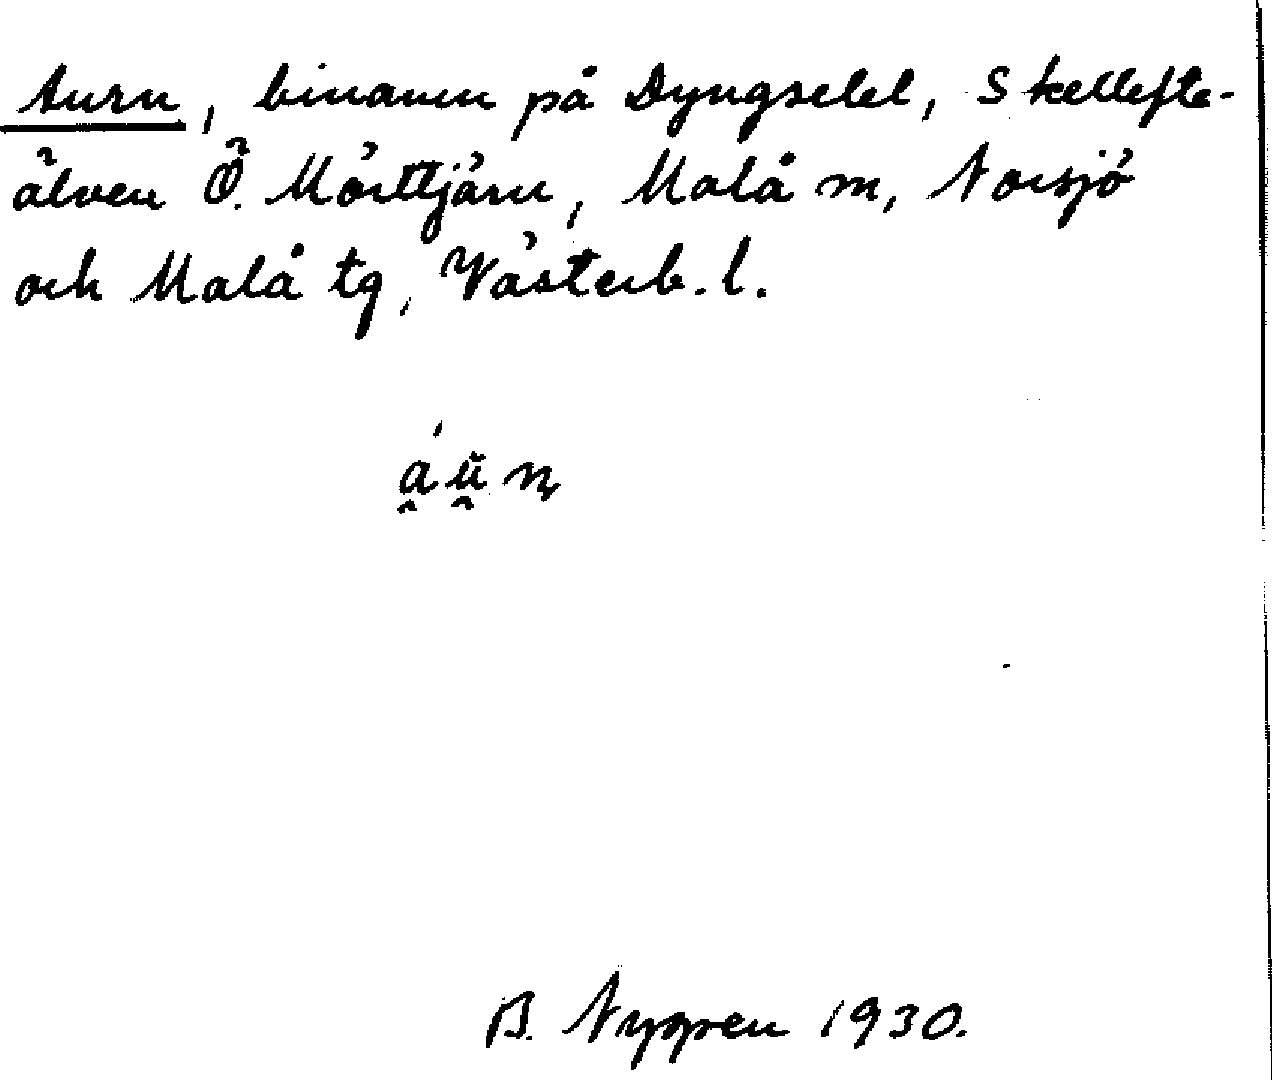 Aurn, binamn på Dyngselel, Skellefte-
älven Ö. Mörttjärn, Malå sn, Norsjö
och Malå tg, Västerb. l.
B. Nygren 1930.